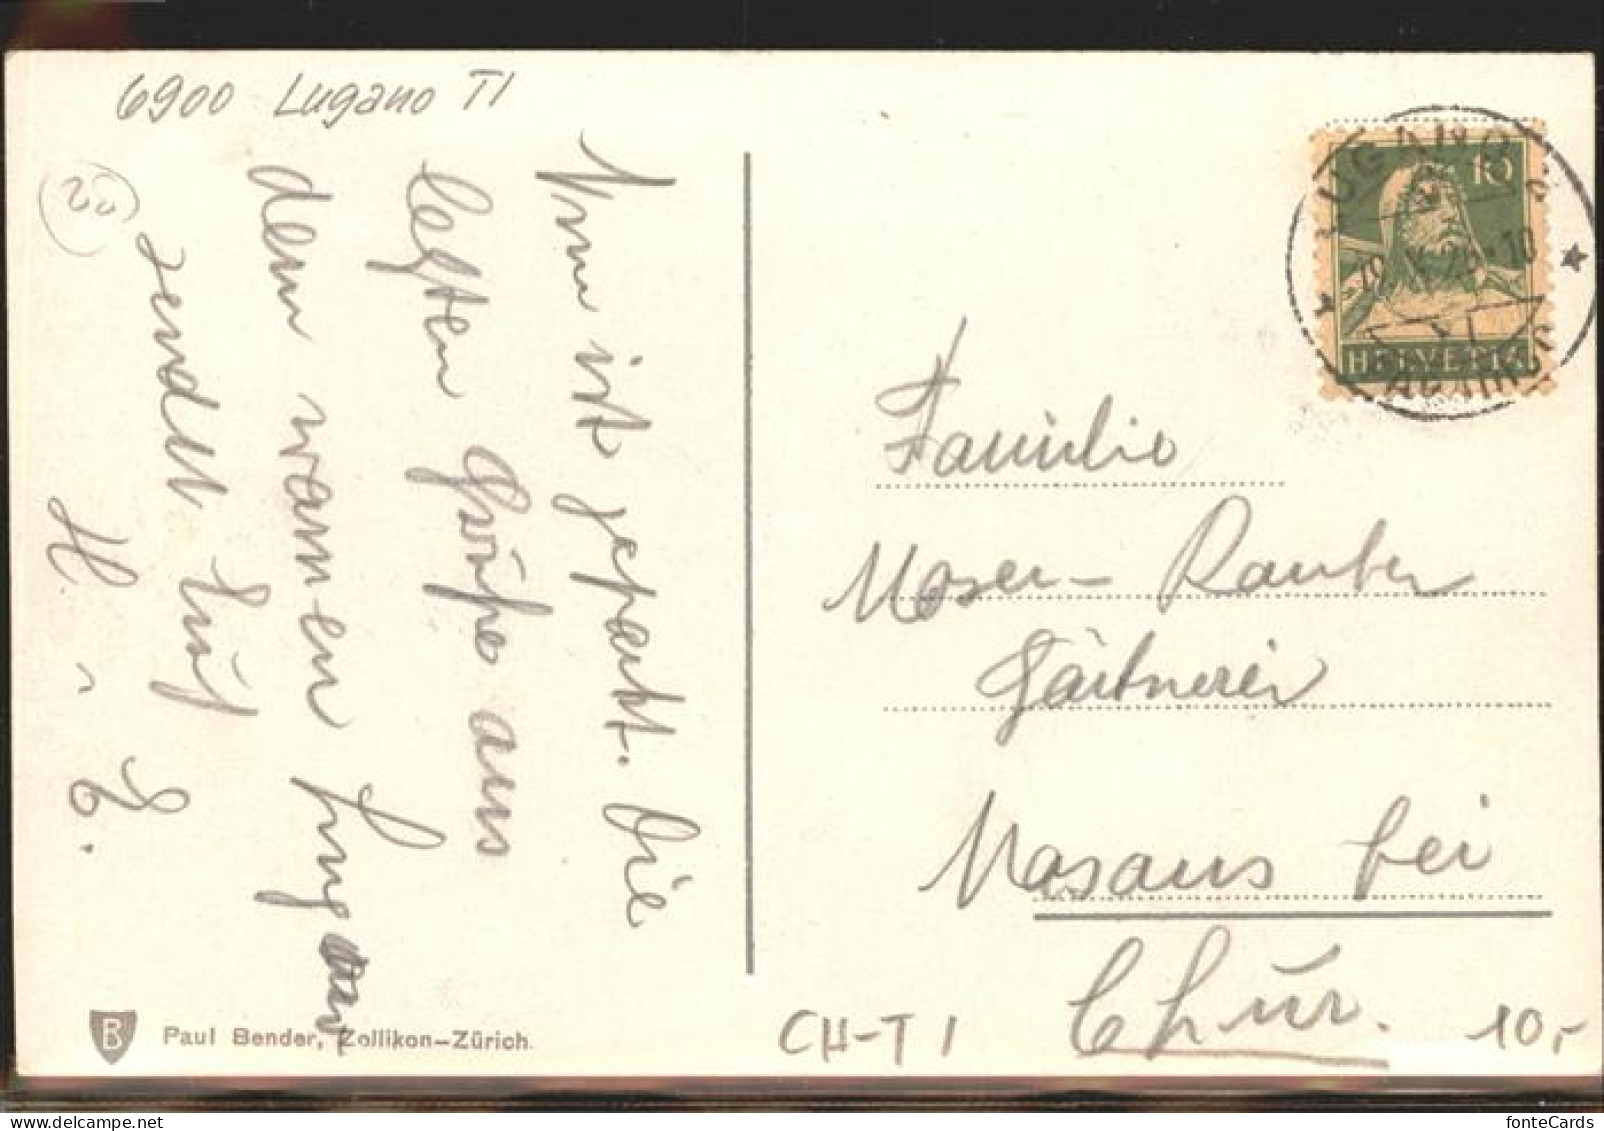 6900 Lugano TI
Nun ist gepackt. Die
letzten Grüße aus
dem warmen Lugano
sendet Euch
H. u. E.
B Paul Bender, Zollikon-Zürich.
LUGANO
10
HELVETIA
Familie
Moser-
Gärtnerei
Masans bei
Chur.
CH-TI
10,-
fonteCards